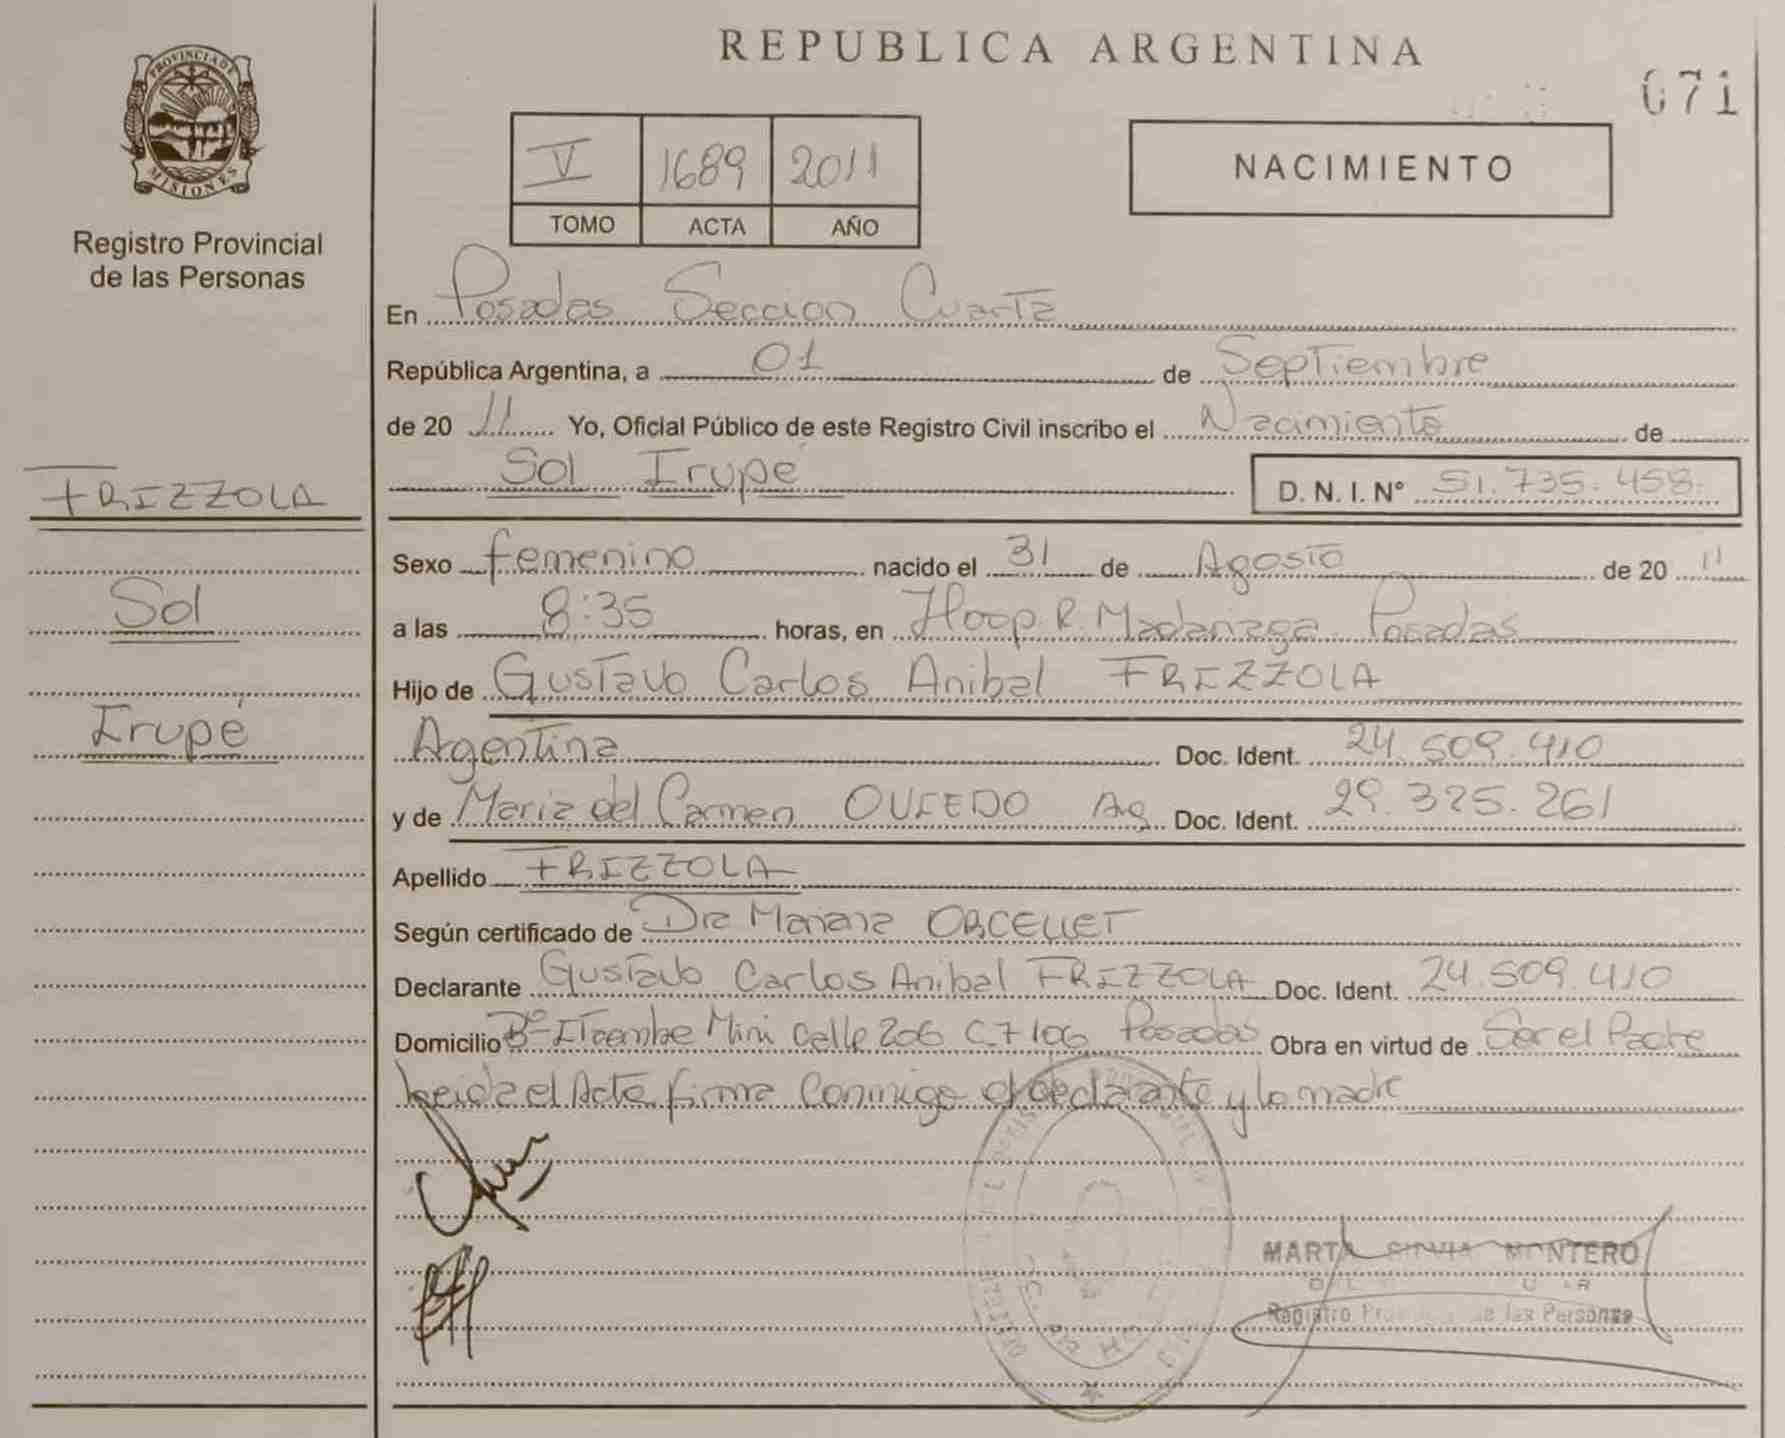 REPUBLICA ARGENTINA
071
PROVINCIA DE
MISIONES
Registro Provincial
de las Personas
V 1689 2011
TOMO ACTA AÑO
NACIMIENTO
En Posadas Seccion Cuarta
República Argentina, a 01 de Septiembre
de 20 11 Yo, Oficial Público de este Registro Civil inscribo el Nacimiento de
Sol Irupé D. N. I. N° 51.735.458.
FRIZZOLA
Sol
Irupé
Sexo femenino nacido el 31 de Agosto de 20 11
a las 8:35 horas, en Hosp. R. Madariaga Posadas
Hijo de Gustavo Carlos Anibal FRIZZOLA
Argentina Doc. Ident. 24.509.410
y de Maria del Carmen OVIEDO Arg Doc. Ident. 29.325.261
Apellido FRIZZOLA
Según certificado de Dra Mariana ORCELLET
Declarante Gustavo Carlos Anibal FRIZZOLA Doc. Ident. 24.509.410
Domicilio Bº Itaembe Mini Calle 206 C.7106 Posadas Obra en virtud de Ser el Padre
Leida el Acta firma Conmigo el declarante y la madre
MARTA SILVIA MONTERO
Registro Provincial de las Personas